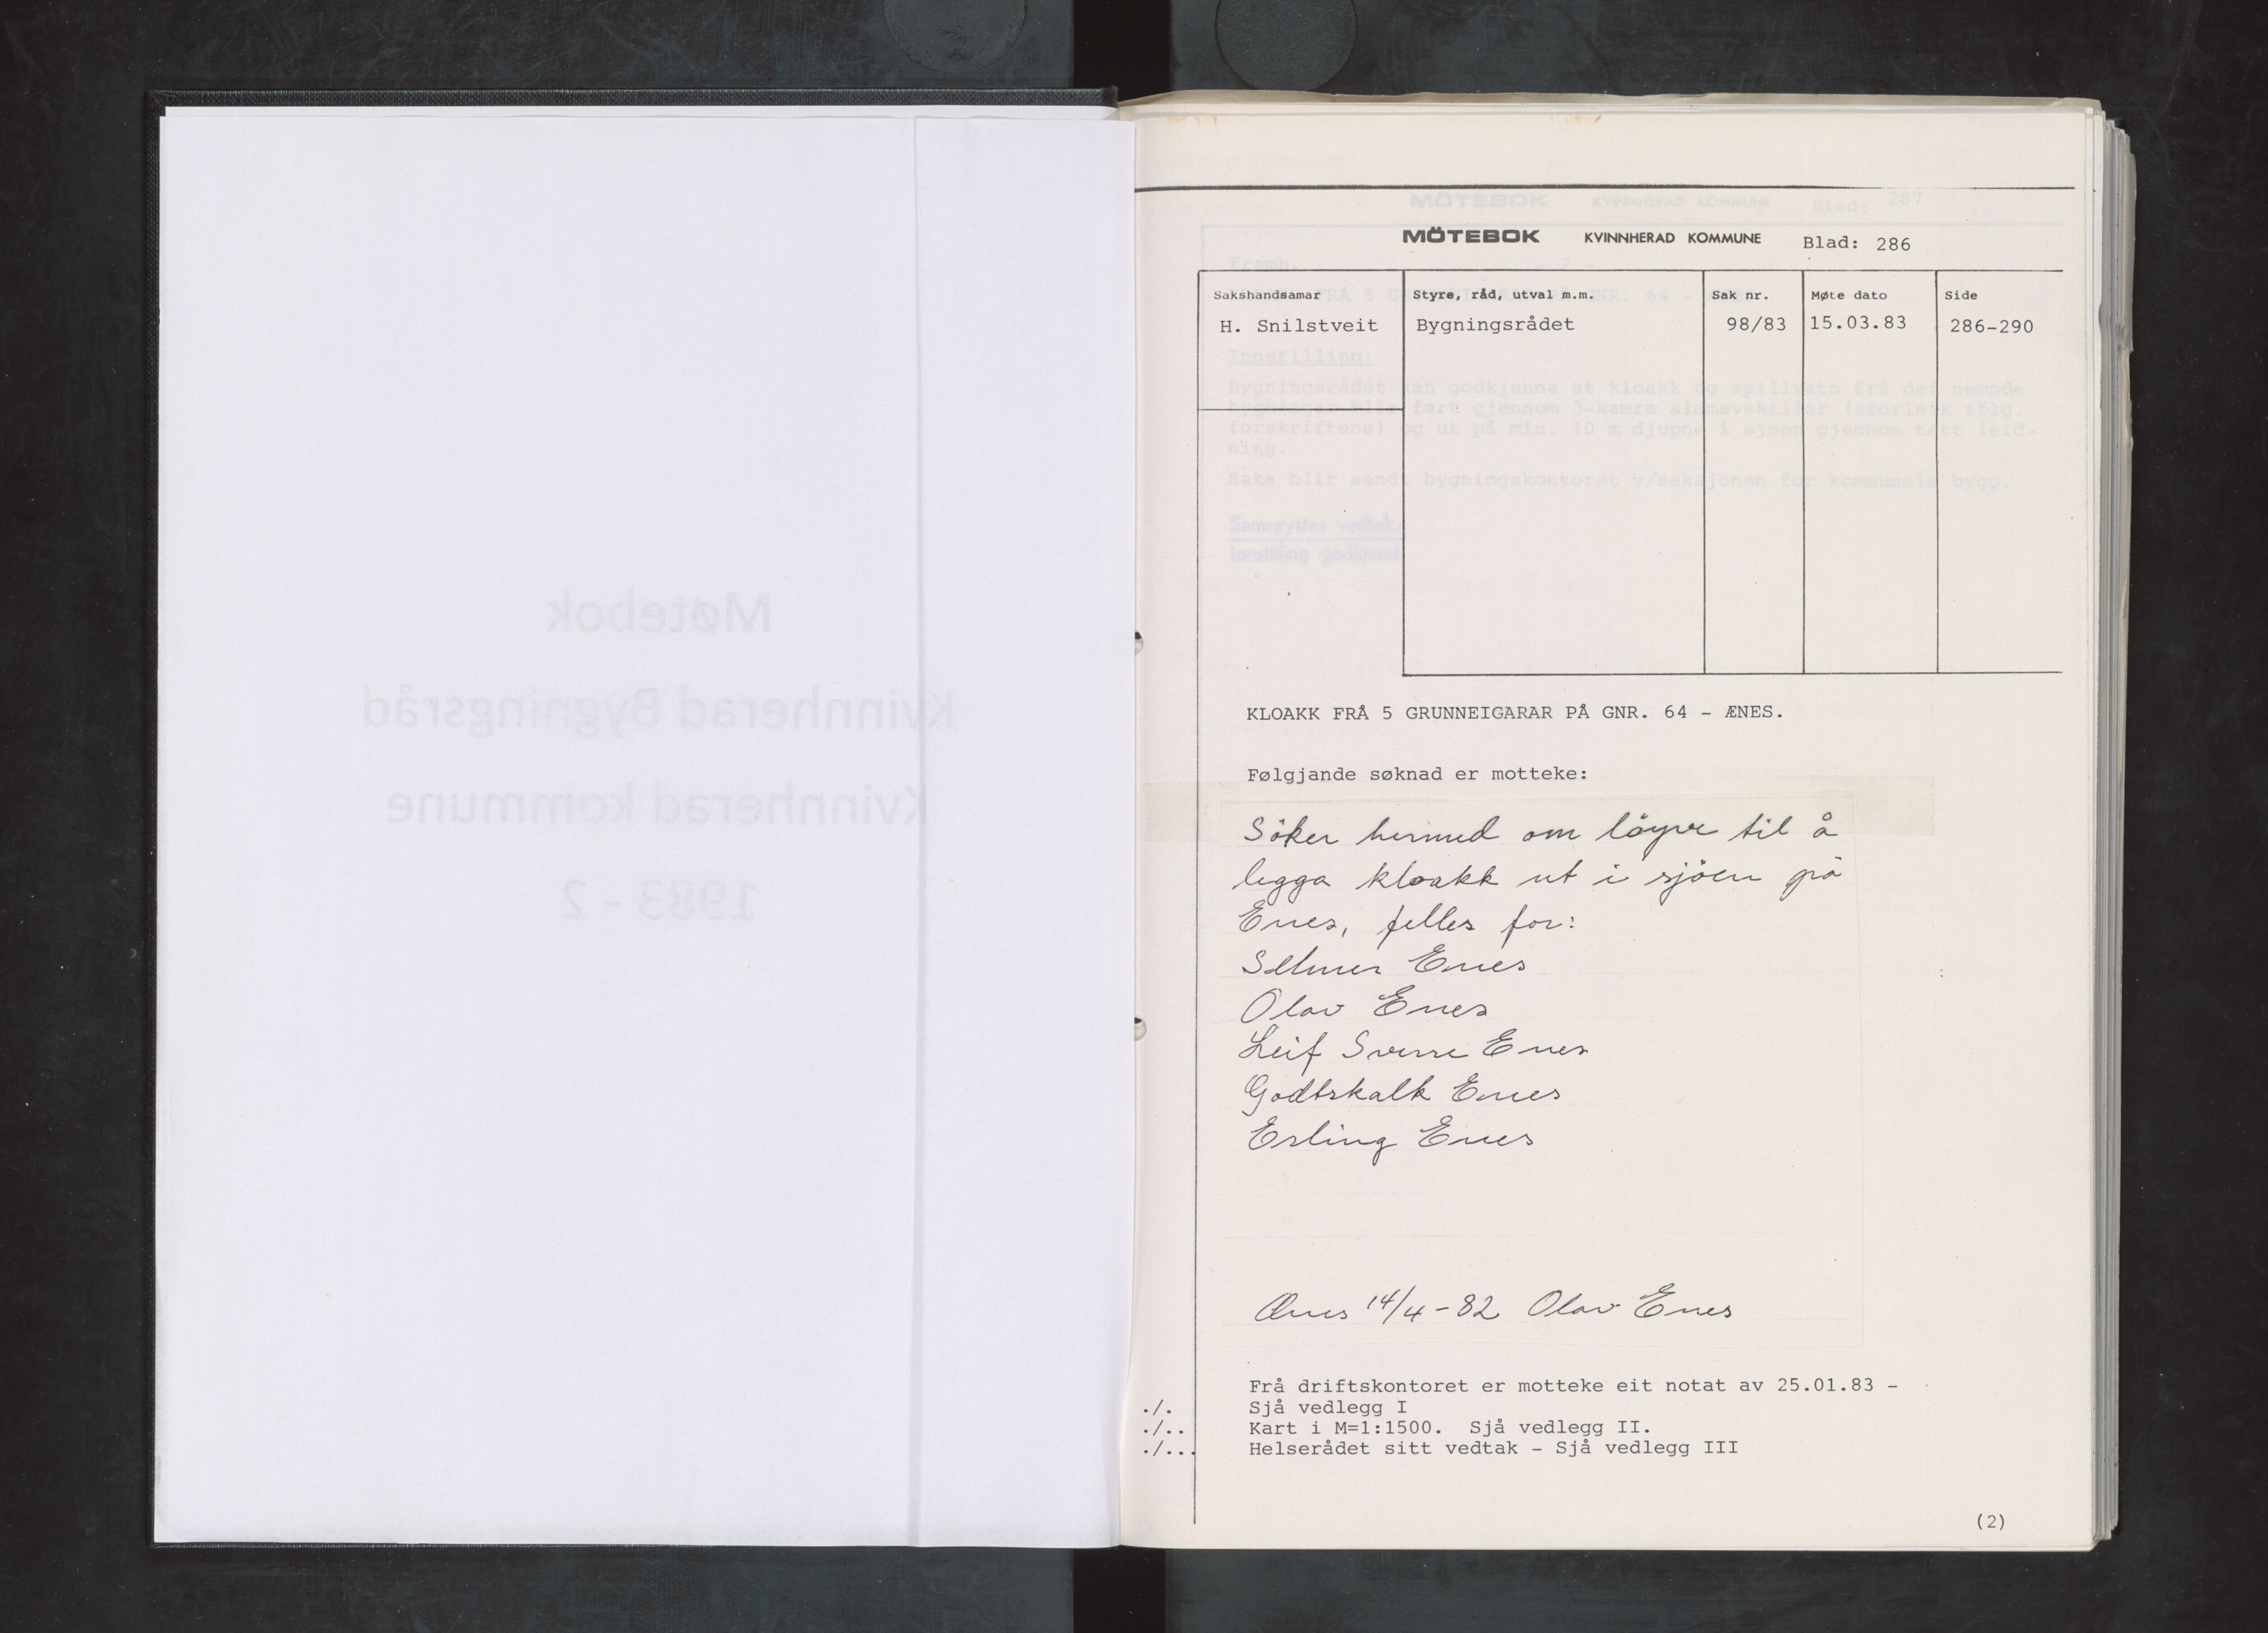 MÖTEBOK KVINNHERAD KOMMUNE Blad: 286
Sakshandsamar Styre, råd, utval m.m. Sak nr. Møte dato Side
H. Snilstveit Bygningsrådet 98/83 15.03.83 286-290
KLOAKK FRÅ 5 GRUNNEIGARAR PÅ GNR. 64 - ÆNES.
Følgjande søknad er motteke:
Söker hermed om löyve til å
legga kloakk ut i sjöen på
Enes, felles for:
Selmer Enes
Olav Enes
Leif Sverre Enes
Godtskalk Enes
Erling Enes
Ænes 14/4-82 Olav Enes
Frå driftskontoret er motteke eit notat av 25.01.83 -
./. Sjå vedlegg I
./.. Kart i M=1:1500. Sjå vedlegg II.
./... Helserådet sitt vedtak - Sjå vedlegg III
(2)
Møtebok
Kvinnherad Bygningsråd
Kvinnherad kommune
1983 - 2